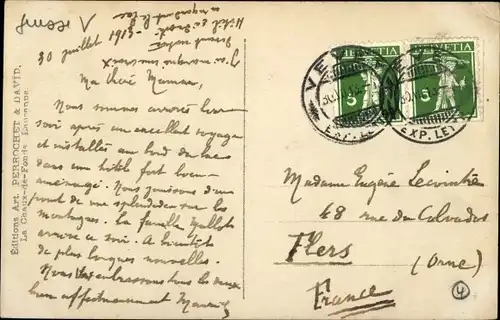 Suisse V
30 juillet 1918
Ma chère Maman,
Nous sommes arrivés hier
soir après un excellent voyage
et installés au bord du lac
dans un hôtel fort bien
aménagé. Nous jouissons d'un
point de vue splendide sur les
montagnes. La famille Mallots
arrive ce soir. A bientôt
de plus longues nouvelles.
Nous t'embrassons tous les deux
bien affectueusement
Editions Art. PERROCHET & DAVID,
La Chaux-de-Fonds
HELVETIA
HELVETIA
5
5
EXP. LET
EXP. LET
Madame Eugène Lecointre
48 rue du Calvados
Flers
(Orne)
France
4